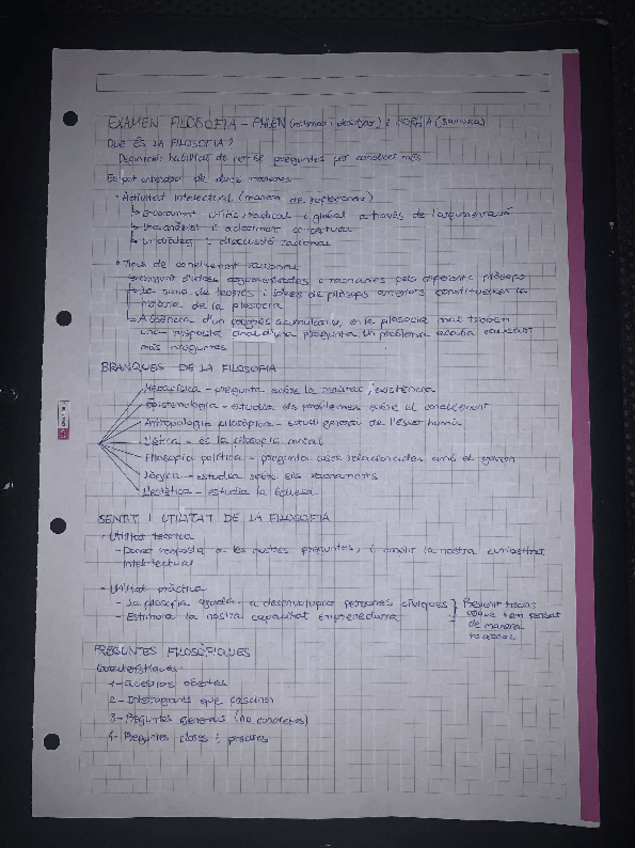 EXAMEN FILOSOFIA - PHILEN (estimar i desitjar) i SOPHIA (saviesa)
QUÈ ÉS LA FILOSOFIA?
Definició: habilitat de fer-se preguntes per conèixer més
Es pot entendre de dues maneres
• Activitat intelectual (manera de reflexionar)
↳ Enraonament crític radical i global a través de l'argumentació
↳ Una anàlisi i aclariment conceptual
↳ Un diàleg i discussió racional
• Tipus de coneixement racional
↳ conjunt d'idees argumentades i raonades pels diferents filòsofs
↳ La suma de teories i idees de filòsofs anteriors constitueixen la
història de la filosofia
↳ Absència d'un progrés acumulatiu, en la filosofia mai troben
una resposta d'una pregunta. Un problema acaba causant
més preguntes
BRANQUES DE LA FILOSOFIA
Metafísica - pregunta sobre la realitat, existència
Epistemologia - estudia els problemes sobre el coneixement
Antropologia filosòfica - estudi general de l'ésser humà
L'ètica - és la filosofia moral
Filosofia política - pregunta coses relacionades amb el govern
Lògica - estudia sobre els raonaments
L'estètica - estudia la bellesa
SENTIT I UTILITAT DE LA FILOSOFIA
- Utilitat teòrica
- Donar resposta a les nostres preguntes, i omplir la nostra curiositat
intel·lectual
- Utilitat pràctica
- La filosofia ajuda a desenvolupar persones cíviques
- Estimula la nostra capacitat emprenedora
de manera
racional
PREGUNTES FILOSÒFIQUES
Característiques:
1- Qüestions obertes
2- Interrogants que fascinen
3- Preguntes generals (no concretes)
4- Preguntes clares i precises